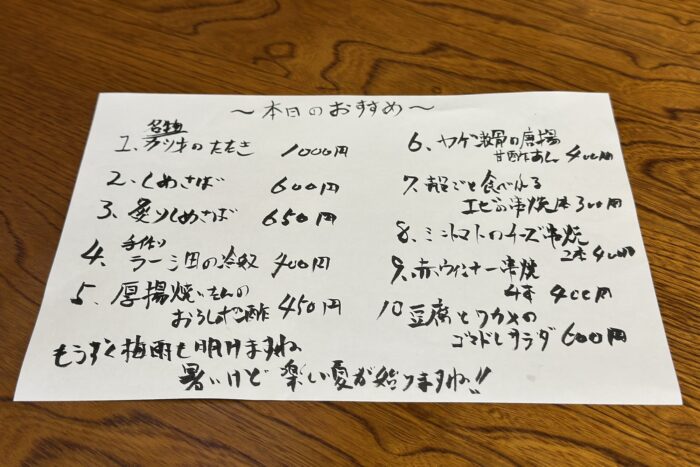 ～本日のおすすめ～
名物
1、カツオのたたき 1000円
2、しめさば 600円
3、炙りしめさば 650円
手作り
4、ラー油の冷奴 400円
5、厚揚焼
おろしポン酢 450円
6、ヤゲン軟骨の唐揚
甘酢あん 400円
7、殻ごと食べれる
エビの串焼 300円
8、ミニトマトのチーズ串焼
2本 400円
9、赤ウィンナー串焼
4本 400円
10 豆腐とワカメの
ゴマドレサラダ 600円
もうすぐ梅雨も明けますね
暑いけど 楽しい夏が始まりますね!!